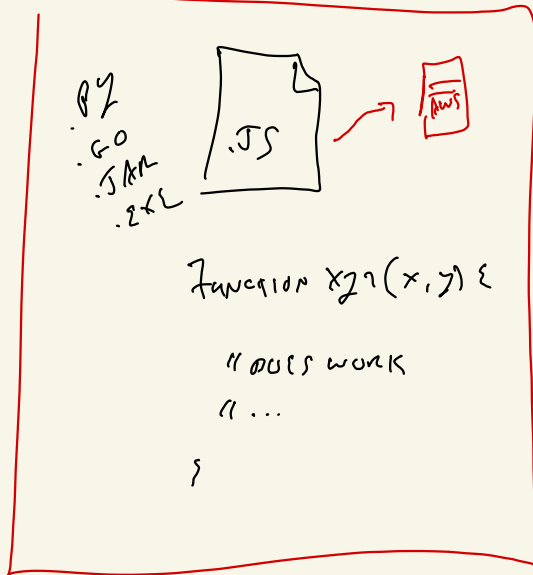 .PY
.GO
.JAR
.EXE
.JS
AWS
FUNCTION XYZ(X,Y) {
// DOES WORK
// ...
}